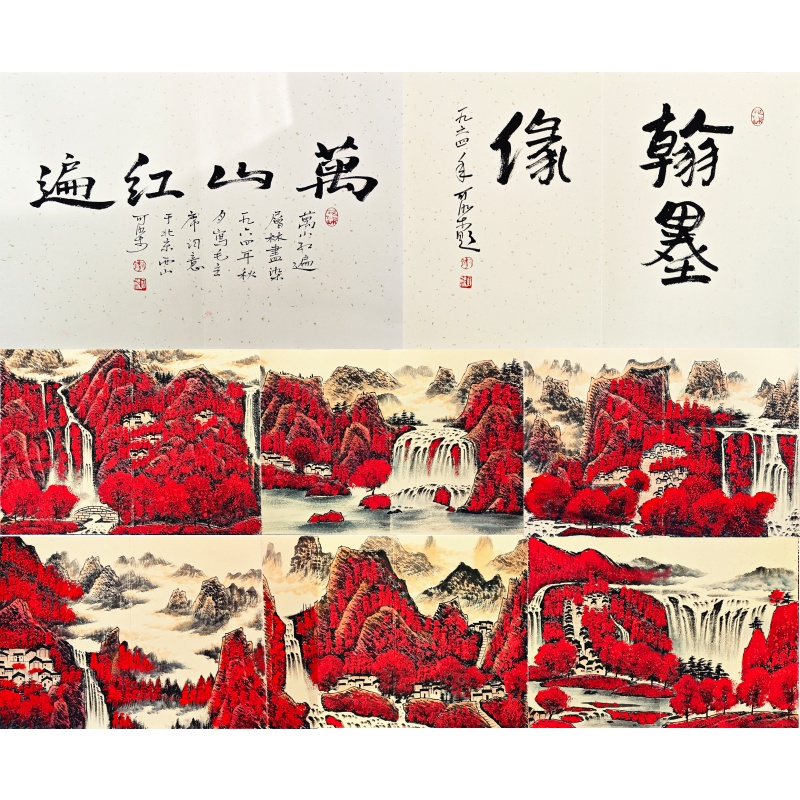 翰墨
缘
一九六四年 可染题
萬山红遍
萬山红遍
層林盡染
一九六四年秋
夕寫毛主
席词意
于北京西山
可染